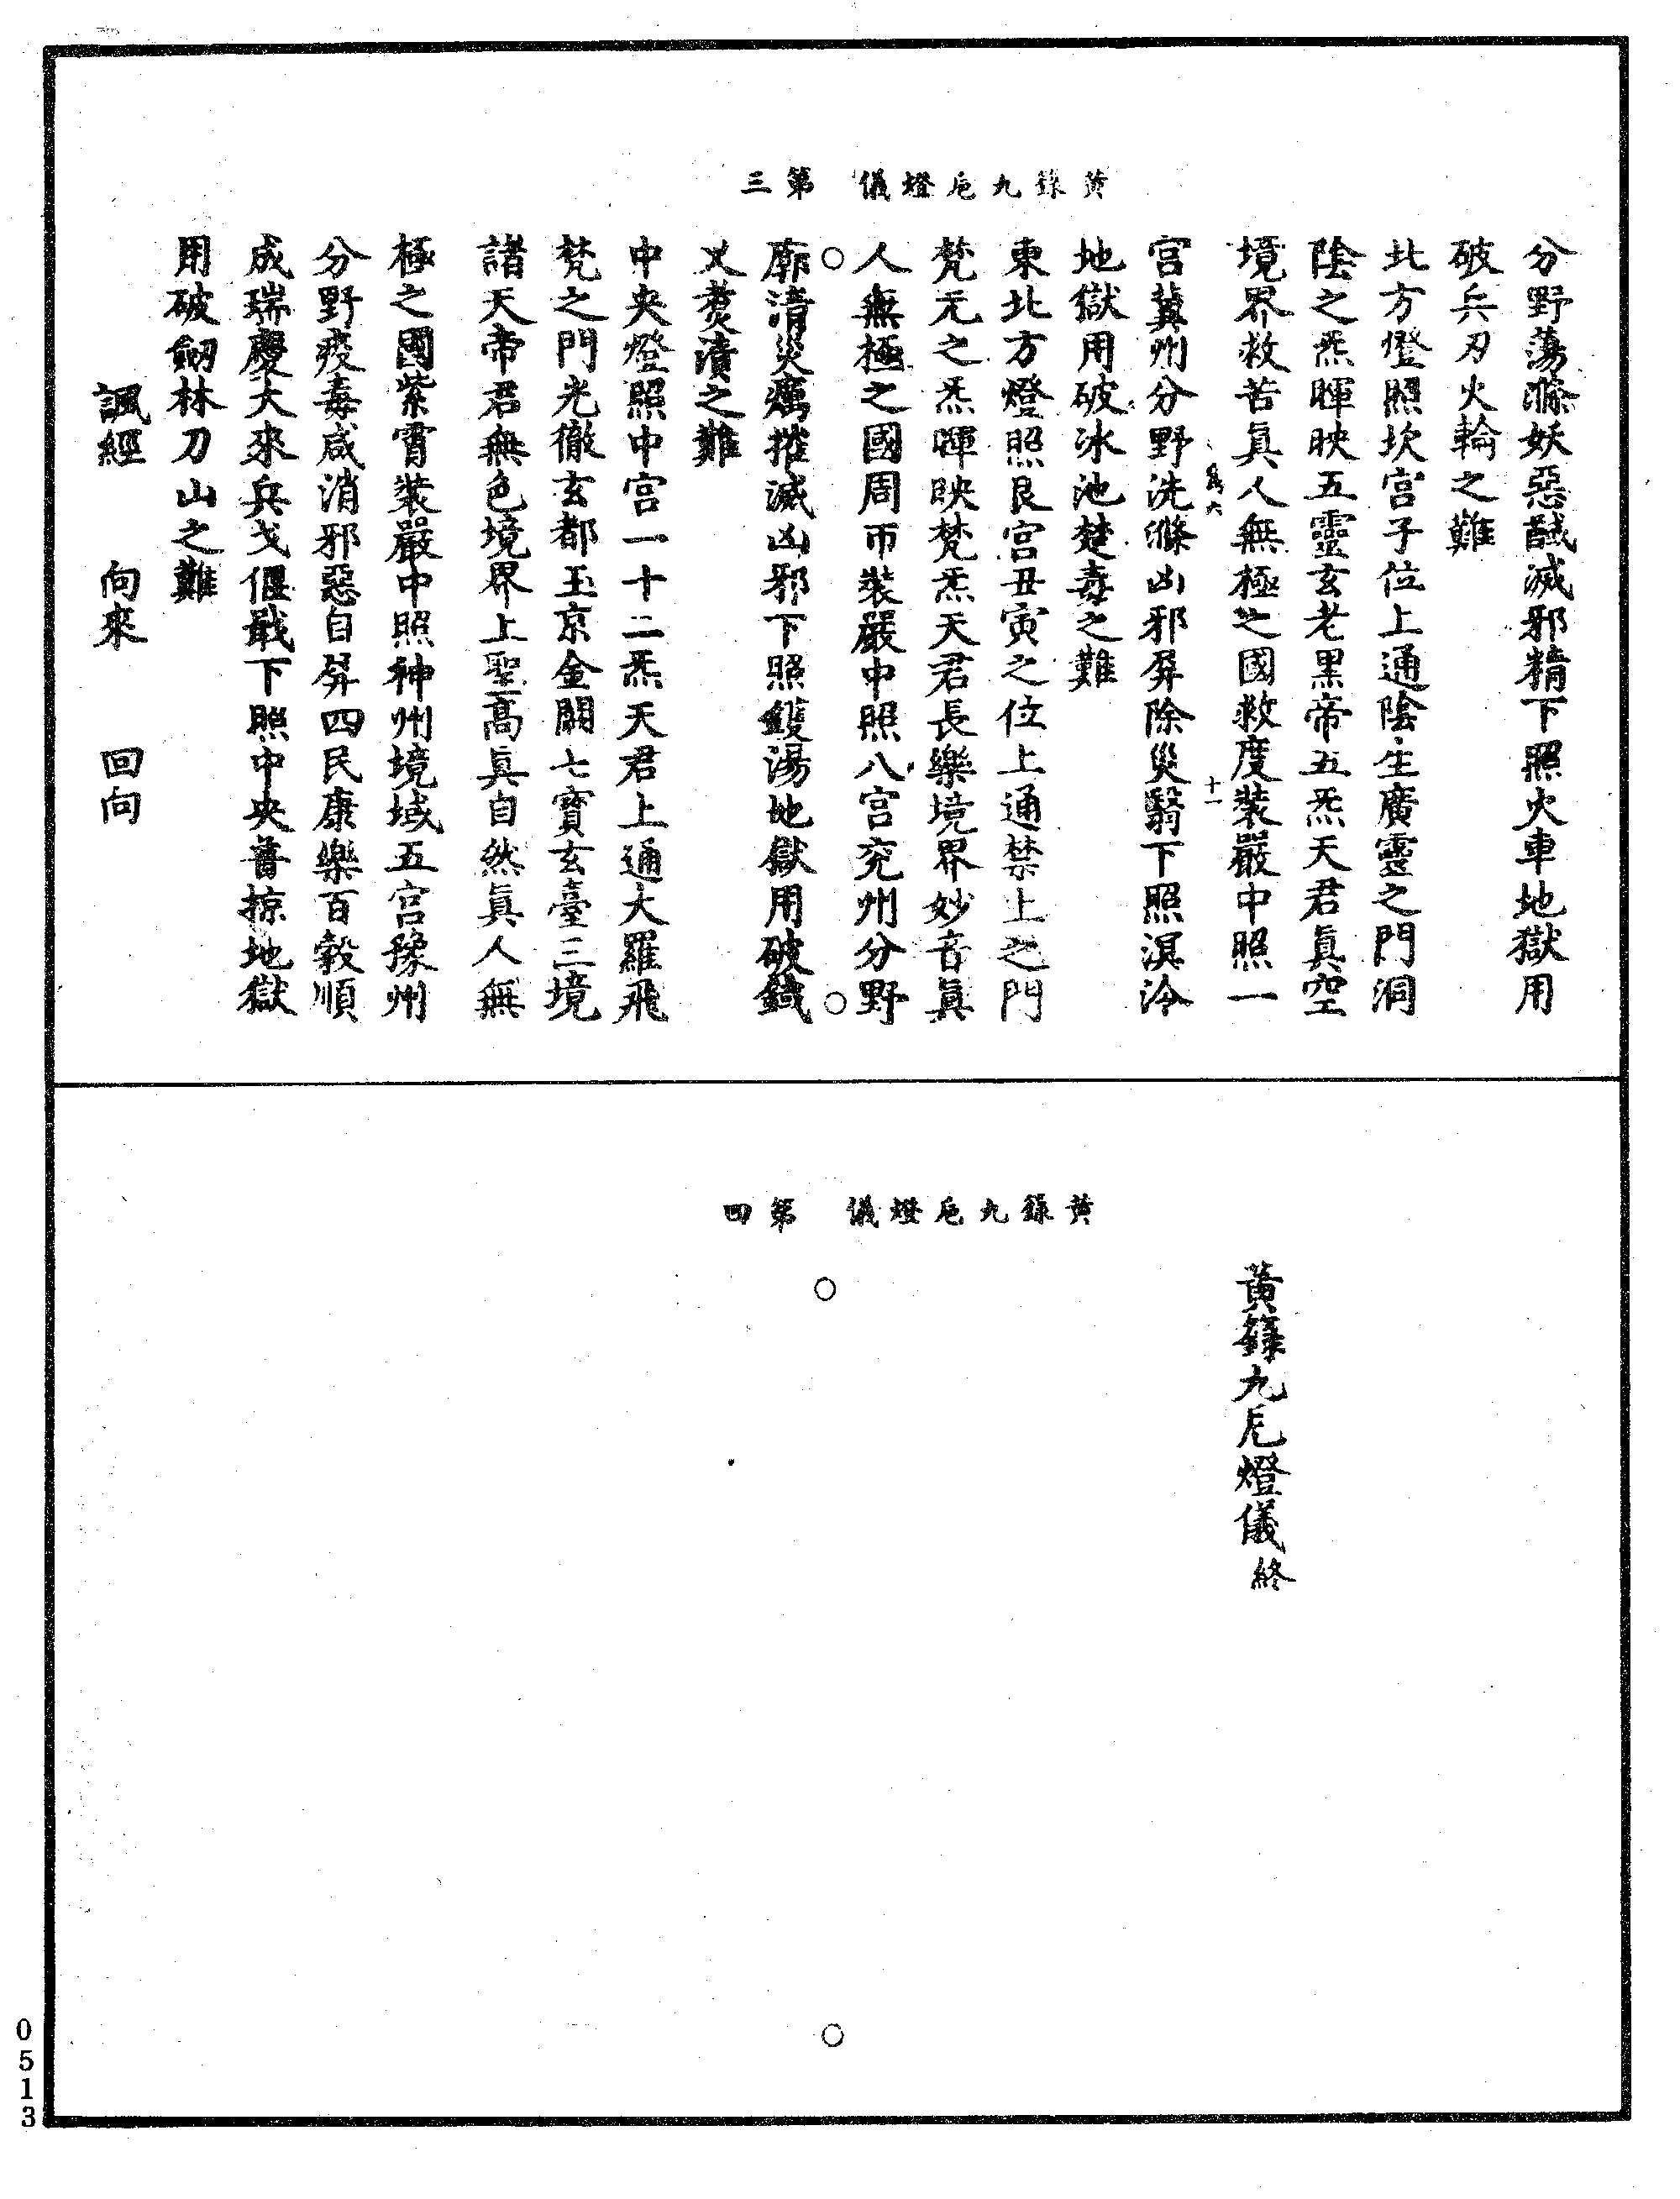 黃籙九巵燈儀　第三
分野蕩滌妖惡馘滅邪精下照火車地獄用
破兵刃火輪之難
北方燈照坎宮子位上通陰生廣靈之門洞
陰之炁暉映五靈玄老黑帝五炁天君真空
境界救苦真人無極之國救度裝嚴中照一
十一
宮冀州分野洗滌凶邪屏除災翳下照溟泠
地獄用破冰池楚毒之難
東北方燈照艮宮丑寅之位上通禁上之門
梵元之炁暉映梵炁天君長樂境界妙音真
人無極之國周帀裝嚴中照八宮兖州分野
廓清災癘摧滅凶邪下照鑊湯地獄用破鐵
叉煑漬之難
中央燈照中宮一十二炁天君上通大羅飛
梵之門光徹玄都玉京金闕七寶玄臺三境
諸天帝君無色境界上聖高真自然真人無
極之國紫霄裝嚴中照神州境域五宮豫州
分野疫毒咸消邪惡自屏四民康樂百穀順
成瑞慶大來兵戈偃戢下照中央普掠地獄
用破劒林刀山之難
諷經　向來　回向
黃籙九巵燈儀　第四
黃籙九巵燈儀終
0513